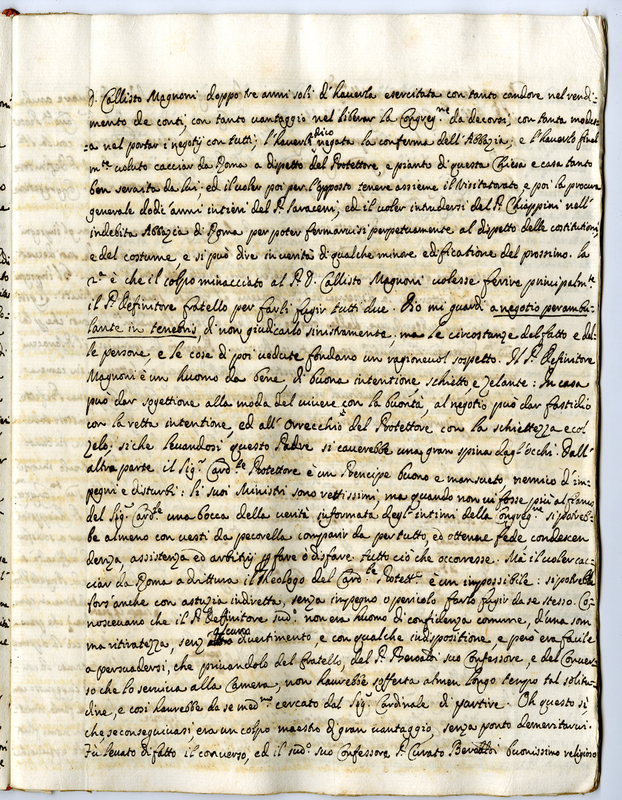 D. Callisto Magnoni doppo tre anni soli d'haverla esercitata con tanto candore nel rendi-
mento de conti, con tanto vantaggio nel liberar la Congreg.ne da decorsi, con tanta modest-
a nel portar i negotij con tutti; l'haverli dico negata la conferma dell'Abbazia; e l'haverlo final
m.te voluto cacciar da Roma a dispetto del Protettore, e pianto di questa Chiesa e casa tanto
ben servita da lui; ed il voler poi per l'opposto tenere assieme il Visitatorato, e poi la procura
generale dodici anni intieri del P. Saraceni; ed il voler intrudersi del P. Chiappini nell'
indebita Abbazia di Roma per poter fermarvisi perpetuamente al dispetto delle costitutioni,
e del costume, e si può dire in verità di qualche minore edificatione del prossimo. La
2.a è che il colpo minacciato al P. D. Callisto Magnoni volesse ferire principalm.te
il P. Definitore fratello per farli fugir tutti due. Dio mi guardi a negotio perambu-
lante in tenebris, di non giudicarlo sinistramente, ma le circostanze del fatto e del-
le persone, e le cose di poi vedute fondano un ragionevol sospetto. Il P. Definitore
Magnoni è un huomo da bene, di buona intentione, schietto e zelante: In casa
può dar sogettione alla moda del vivere con la buontà, al negotio può dar fastidio
con la retta intentione, ed all'orrecchio del Protettore con la schiettezza e col
zelo; sì che levandosi questo Padre si caverebbe una gran spina dagl'occhi. Dall'
altra parte il Sig.r Card.le Protettore è un Prencipe buono e mansueto, nemico d'im-
pegni e disturbi: li suoi Ministri sono rettissimi, ma quando non vi fosse più al fianco
del Sig.r Card.le una bocca della verità informata degl'intimi della Congreg.ne si potreb-
be almeno con vesti da pecorella comparir da per tutto, ed ottenere fede, condescen
denza, assistenza ed arbitrij p fare o disfare tutto ciò che occorresse. Mà il voler cac-
ciar da Roma a drittura il Theologo del Card.le Protett.e è un impossibile: si potrebbe
fors'anche con astuzia indiretta, senza impegno o pericolo farlo fugir da se stesso. Co-
noscevano che il P. Definitore sud.o non era huomo di confidenza comune, d'una som
ma ritiratezza, senz'alcuno divertimento e con qualche indispositione, e però era facile
a persuadersi, che privandolo del Fratello, del P. suo Confessore, e del Conver-
so che lo serviva alla Camera, non haverebbe sofferta almen longo tempo tal solitu-
dine, e così haverebbe da se med.o cercato dal Sig.r Cardinale di partire. Oh questo sì
che se conseguivasi, era un colpo maestro di gran vantaggio, senza ponto demeritarvi.
Fù levato di fatto il converso, ed il sud.o suo Confessore P. Curato buonissimo religioso